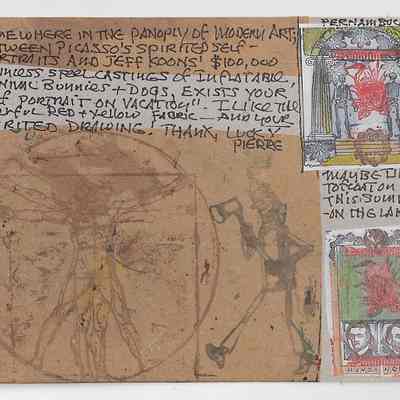 MEWHERE IN THE PANOPLY OF MODERN ART,
TWEEN PICASSO'S SPIRITED SELF-
RTRAITS AND JEFF KOONS' $100,000
INLESS STEEL CASTINGS OF INFLATABLE
NIVAL BUNNIES + DOGS, EXISTS YOUR
F PORTRAIT ON VACATION". I LIKE THE
RFUL RED + YELLOW FABRIC — AND YOUR
IRITED DRAWING. THANX, LUCKY
PIERRE
PERNAMBUC
MAYBE
THIS SUM
-ON THE